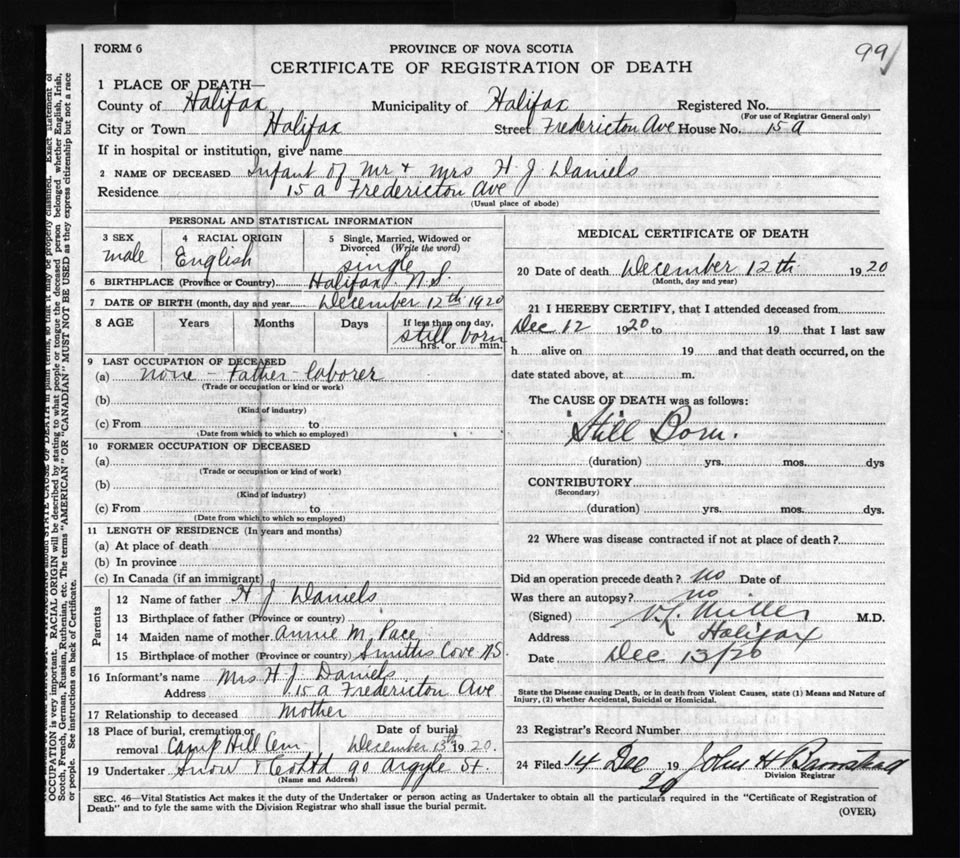 FORM 6
PROVINCE OF NOVA SCOTIA
99
CERTIFICATE OF REGISTRATION OF DEATH
1 PLACE OF DEATH—
County of Halifax Municipality of Halifax Registered No.
(For use of Registrar General only)
City or Town Halifax Street Fredericton Ave House No. 15a
If in hospital or institution, give name
2 NAME OF DECEASED Infant of Mr & Mrs H J Daniels
Residence 15a Fredericton Ave
(Usual place of abode)
PERSONAL AND STATISTICAL INFORMATION
3 SEX 4 RACIAL ORIGIN 5 Single, Married, Widowed or
Divorced (Write the word)
male English single
6 BIRTHPLACE (Province or Country) Halifax N.S.
7 DATE OF BIRTH (month, day and year) December 12th 1920
8 AGE Years Months Days If less than one day,
still born
hrs. or min.
9 LAST OCCUPATION OF DECEASED
(a) none - Father laborer
(Trade or occupation or kind or work)
(b)
(Kind of industry)
(c) From to
(Date from which to which so employed)
10 FORMER OCCUPATION OF DECEASED
(a)
(Trade or occupation or kind of work)
(b)
(Kind of industry)
(c) From to
(Date from which to which so employed)
11 LENGTH OF RESIDENCE (In years and months)
(a) At place of death
(b) In province
(c) In Canada (if an immigrant)
Parents
12 Name of father H J Daniels
13 Birthplace of father (Province or country)
14 Maiden name of mother Annie M. Pace
15 Birthplace of mother (Province or country) Smiths Cove N.S.
16 Informant's name Mrs H. J. Daniels
Address 15a Fredericton Ave
17 Relationship to deceased Mother
18 Place of burial, cremation or Date of burial
removal Camp Hill Cem December 13th 1920.
19 Undertaker Snow & Co Ltd 90 Argyle St.
(Name and Address)
MEDICAL CERTIFICATE OF DEATH
20 Date of death December 12th 1920
(Month, day and year)
21 I HEREBY CERTIFY, that I attended deceased from
Dec 12 1920 to 19 that I last saw
h alive on 19 and that death occurred, on the
date stated above, at m.
The CAUSE OF DEATH was as follows:
Still Born.
(duration) yrs. mos. dys
CONTRIBUTORY
(Secondary)
(duration) yrs. mos. dys.
22 Where was disease contracted if not at place of death?
Did an operation precede death? no Date of
Was there an autopsy? no
(Signed) Miller M.D.
Address Halifax
Date Dec 13/20
State the Disease causing Death, or in death from Violent Causes, state (1) Means and Nature of
Injury, (2) whether Accidental, Suicidal or Homicidal.
23 Registrar's Record Number
24 Filed 14 Dec 19 20 John H
Division Registrar
SEC. 46—Vital Statistics Act makes it the duty of the Undertaker or person acting as Undertaker to obtain all the particulars required in the "Certificate of Registration of
Death" and to fyle the same with the Division Registrar who shall issue the burial permit.
(OVER)
OCCUPATION is very important. RACIAL ORIGIN will be described by stating to what people or tongue the deceased person belonged whether English, Irish,
Scotch, French, German, Russian, Ruthenian, etc. The terms "AMERICAN" OR "CANADIAN" MUST NOT BE USED as they express citizenship but not a race
or people. See instructions on back of Certificate.